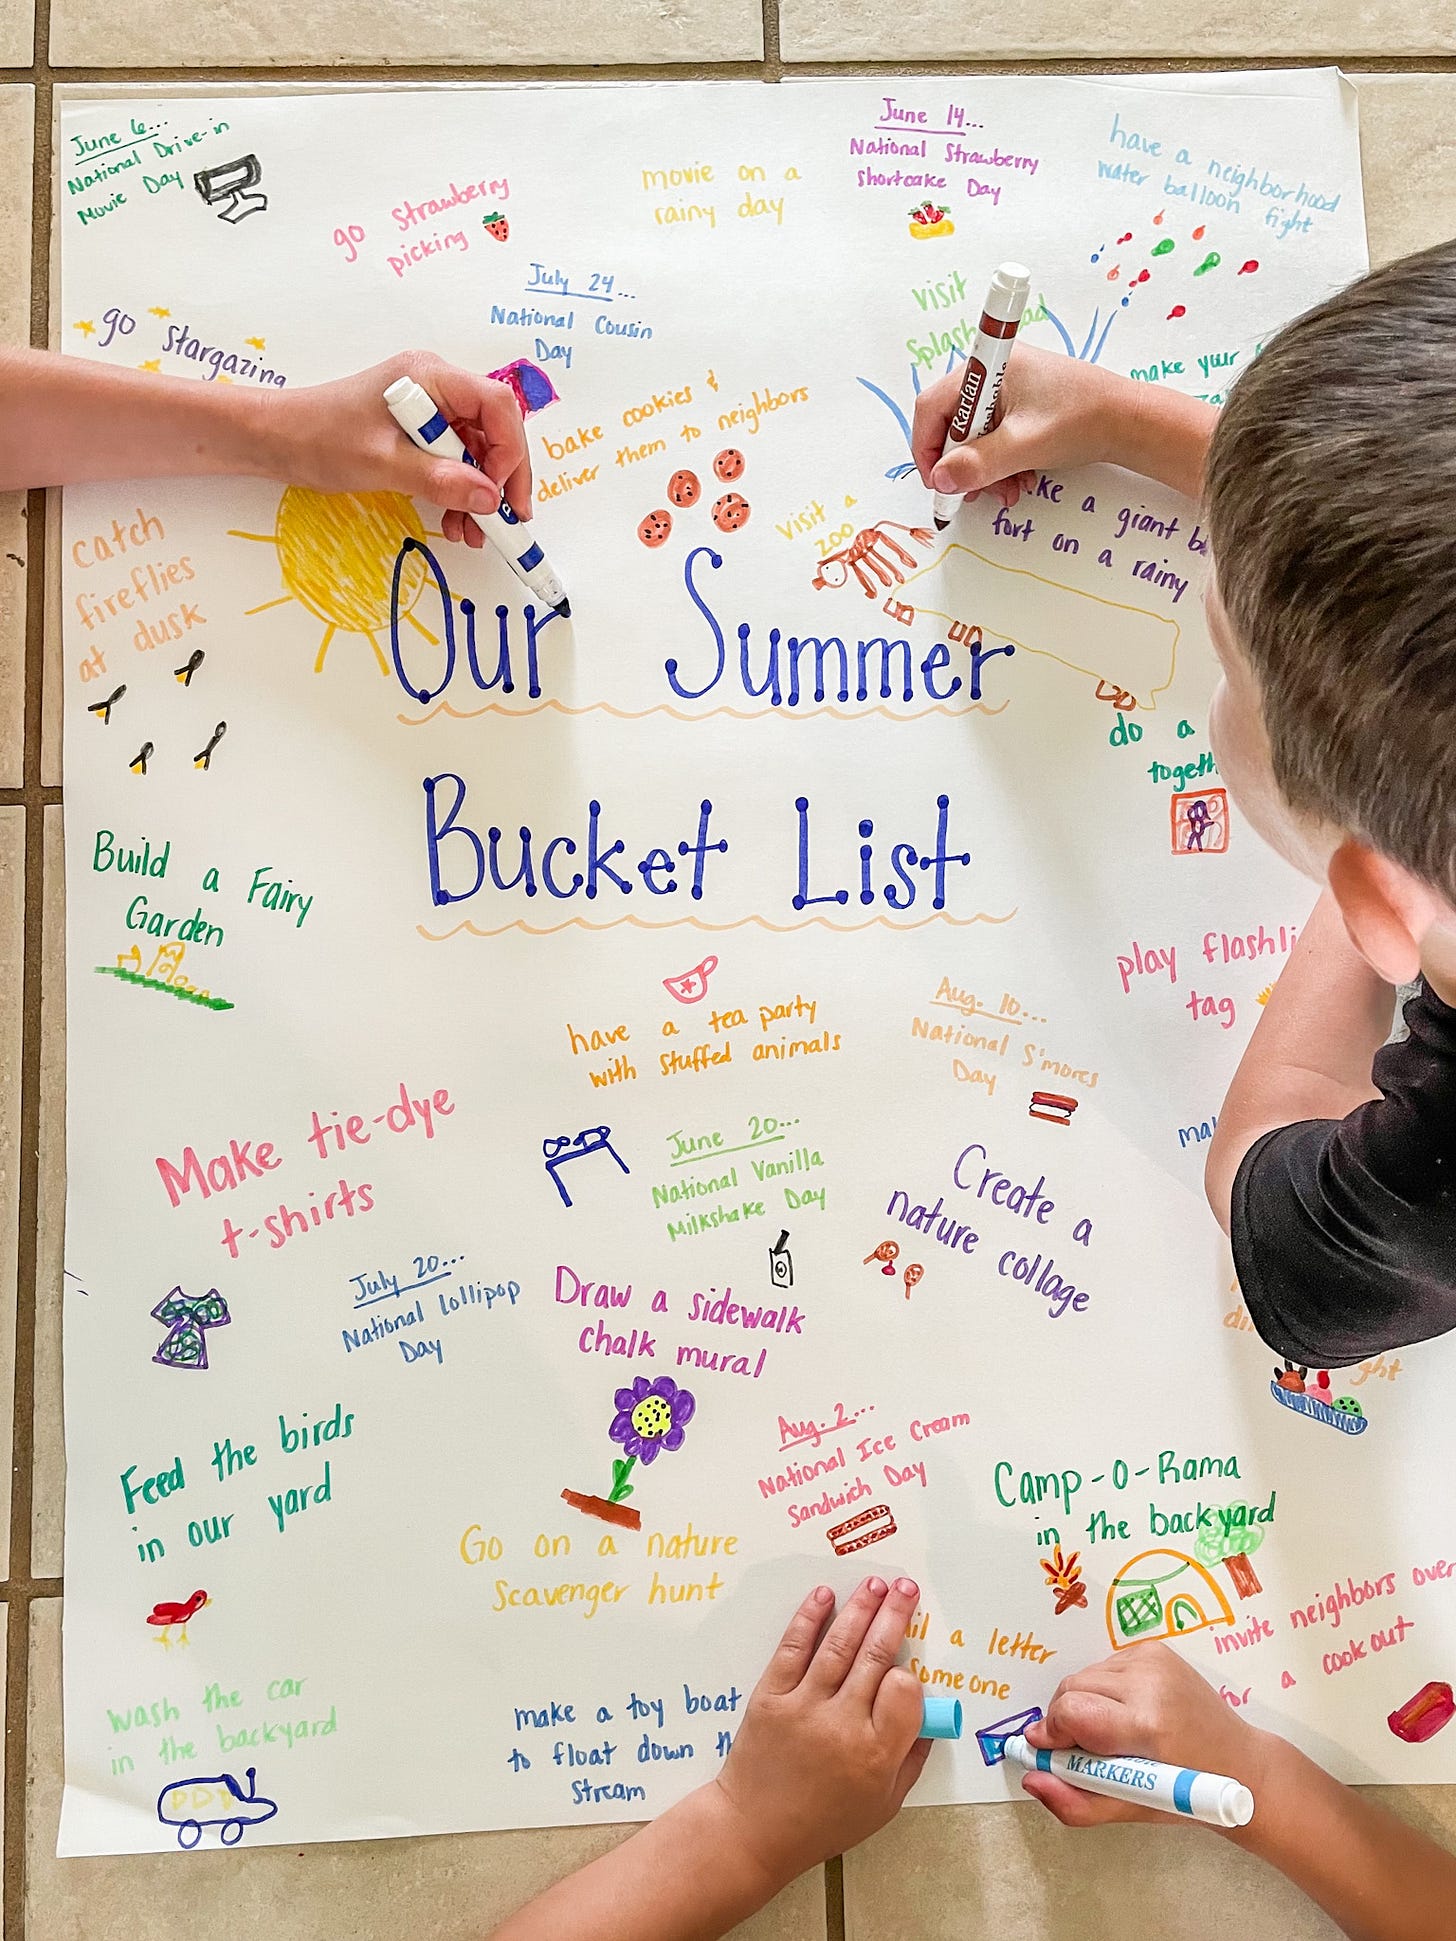 June 6...
National Drive-in
Movie Day
go strawberry
picking
movie on a
rainy day
June 14...
National Strawberry
Shortcake Day
have a neighborhood
water balloon fight
go stargazing
July 24...
National Cousin
Day
visit
splash
make your
bake cookies &
deliver them to neighbors
visit a
zoo
a giant
fort on a rainy
catch
fireflies
at dusk
Our Summer
Bucket List
do a
together
Build a Fairy
Garden
play
tag
have a tea party
with stuffed animals
Aug. 10...
National S'mores
Day
Make tie-dye
t-shirts
June 20...
National Vanilla
Milkshake Day
Create a
nature collage
July 20...
National Lollipop
Day
Draw a sidewalk
chalk mural
Feed the birds
in our yard
Aug. 2...
National Ice Cream
Sandwich Day
Camp-O-Rama
in the backyard
Go on a nature
scavenger hunt
a letter
someone
invite neighbors over
for a cookout
wash the car
in the backyard
make a toy boat
to float down
stream
MARKERS